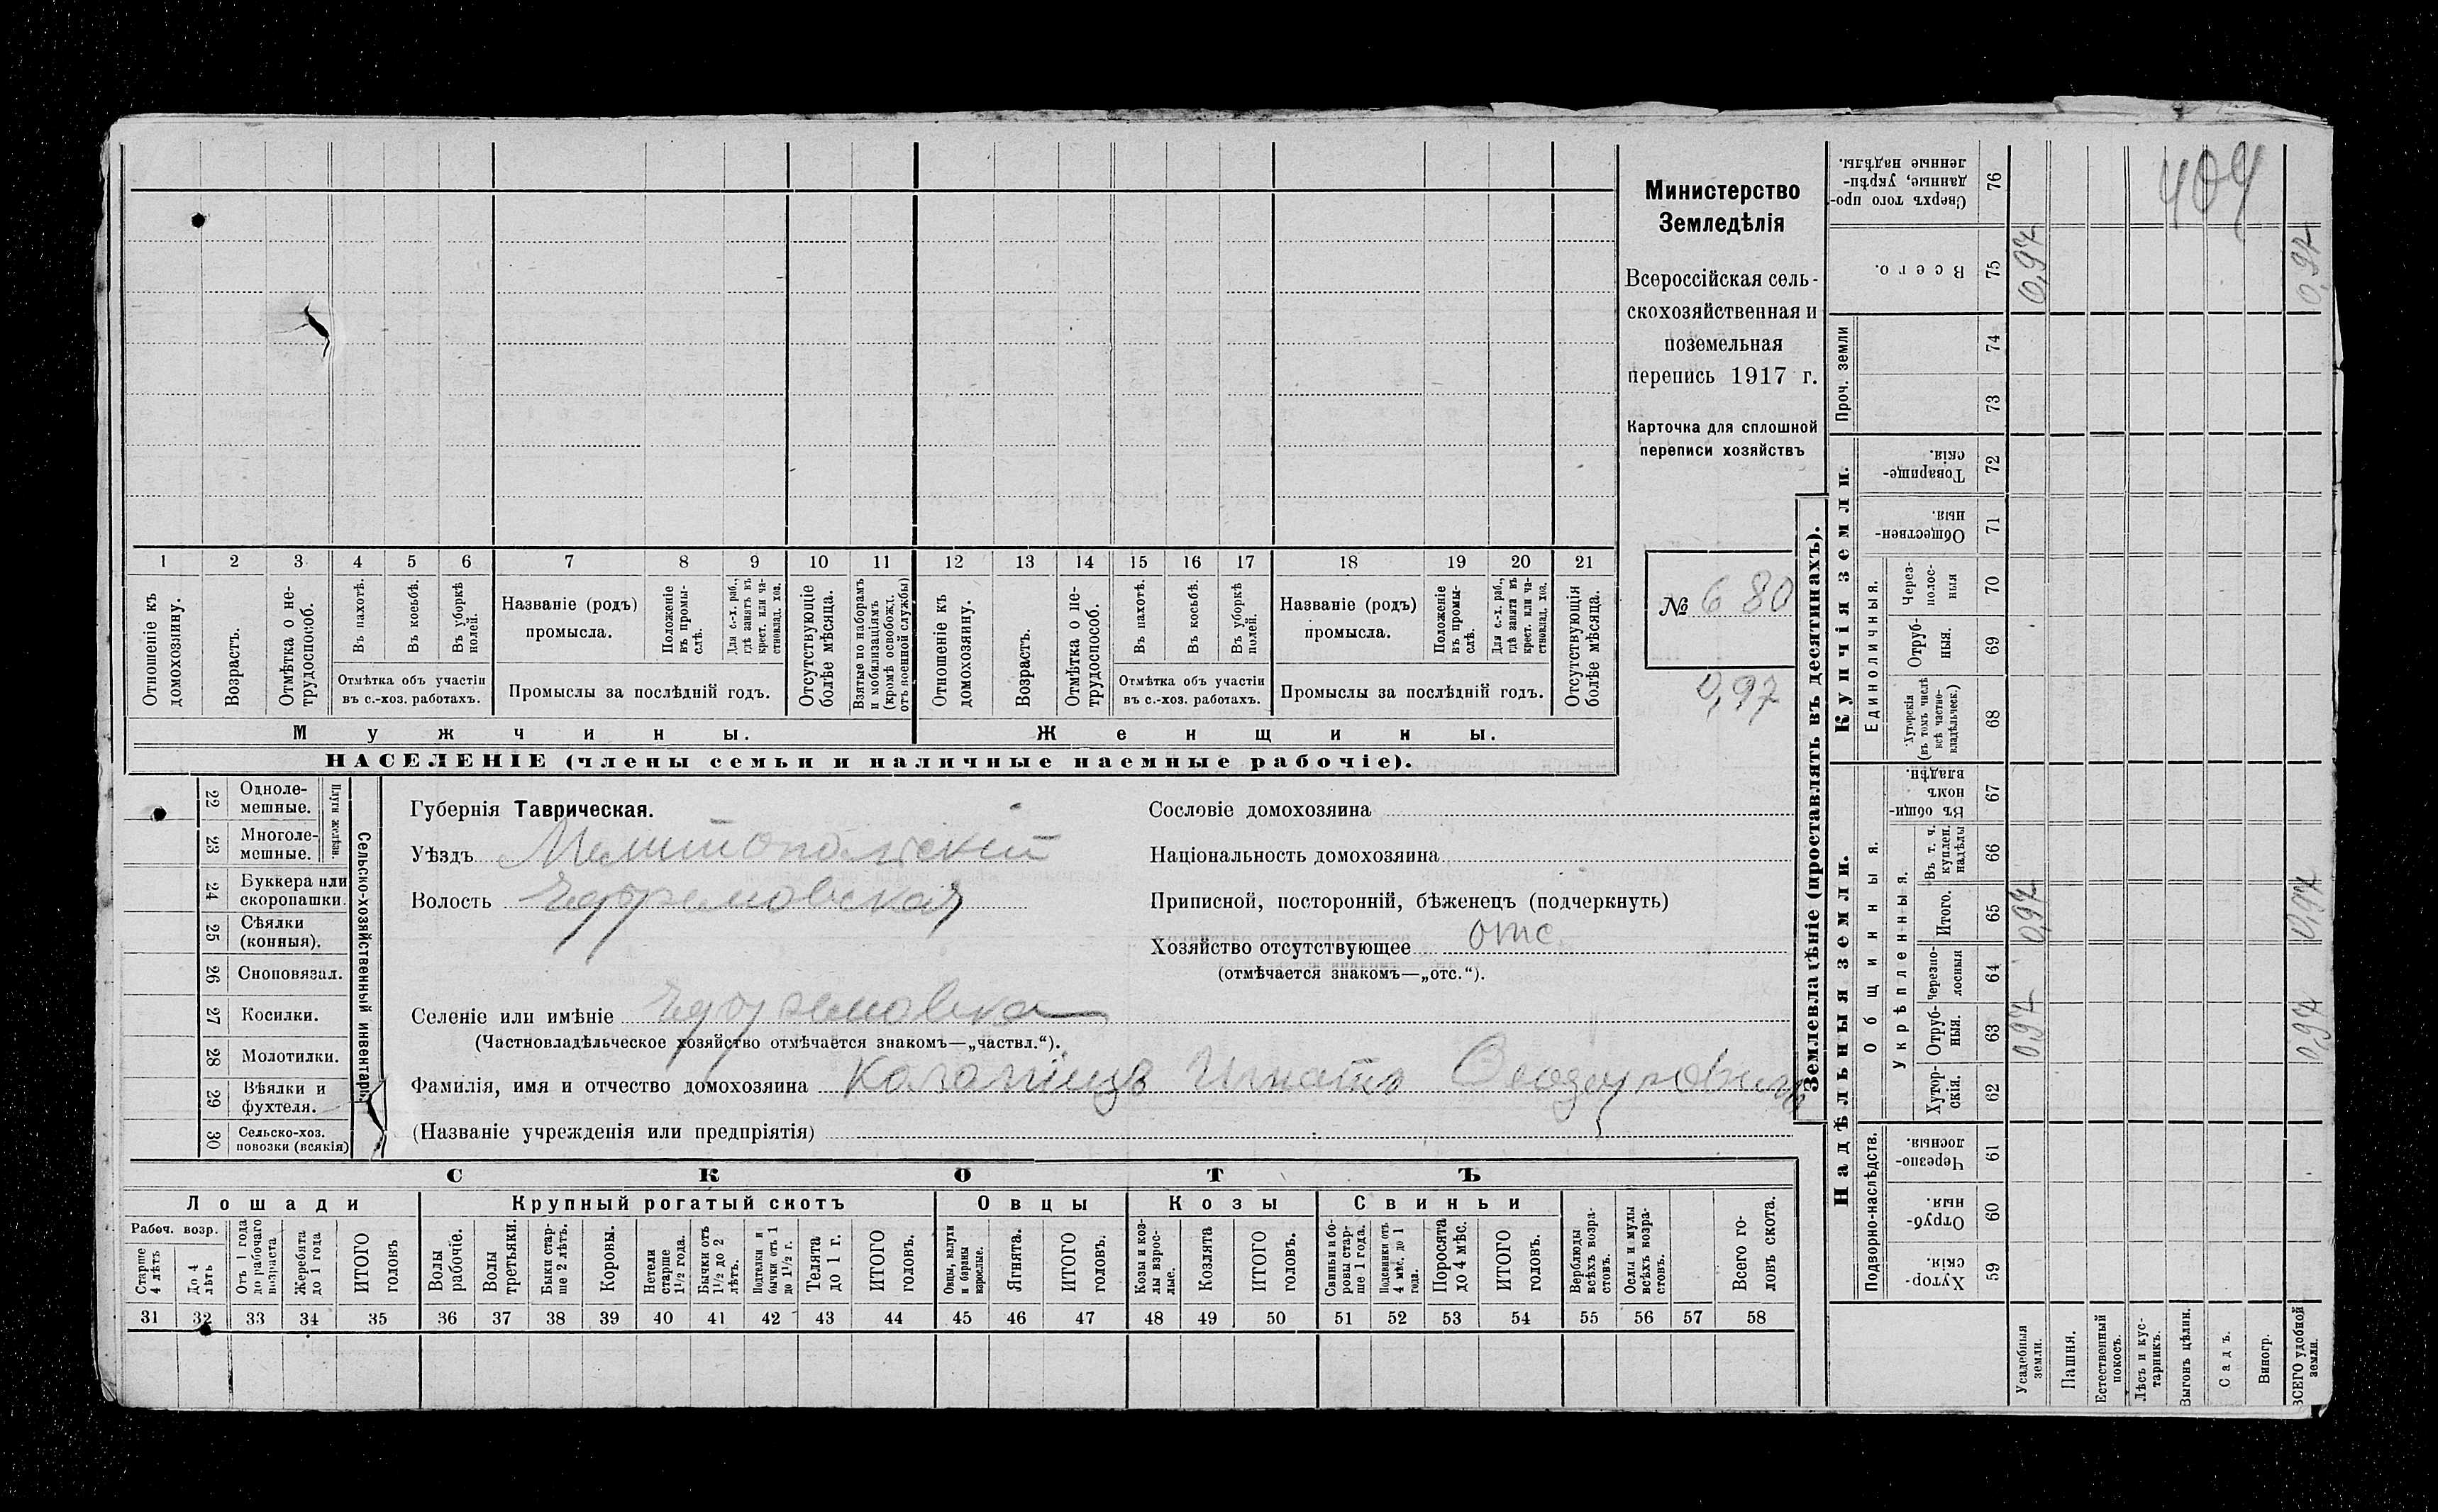 1 2 3 4 5 6 7 8 9 10 11 12 13 14 15 16 17 18 19 20 21
Отношеніе къ домохозяину.
Возрастъ.
Отмѣтка о не-
трудоспособ.
Въ пахотѣ.
Въ косьбѣ.
Въ уборкѣ
полей.
Отмѣтка объ участіи
въ с.-хоз. работахъ.
Названіе (родъ)
промысла.
Положеніе
въ промы-
слѣ.
Для с.-х. раб.,
гдѣ занятъ въ
крест. или ча-
стновлад. хоз.
Промыслы за послѣдній годъ.
Отсутствующіе
болѣе мѣсяца.
Взятые по наборамъ
и мобилизаціямъ
(кромѣ освобожд.
отъ военной службы)
Отношеніе къ
домохозяину.
Возрастъ.
Отмѣтка о не-
трудоспособ.
Въ пахотѣ.
Въ косьбѣ.
Въ уборкѣ
полей.
Отмѣтка объ участіи
въ с.-хоз. работахъ.
Названіе (родъ)
промысла.
Положеніе
въ промы-
слѣ.
Для с.-х. раб.,
гдѣ занята въ
крест. или ча-
стновлад. хоз.
Промыслы за послѣдній годъ.
Отсутствующія
болѣе мѣсяца.
Мужчины.
Женщины.
НАСЕЛЕНІЕ (члены семьи и наличные наемные рабочіе).
Министерство
Земледѣлія
Всероссійская сель-
скохозяйственная и
поземельная
перепись 1917 г.
Карточка для сплошной
переписи хозяйствъ
№ 680
0,97
22 Одноле-
мешные.
23 Многоле-
мешные.
Плуги желѣзн.
24 Буккера или
скоропашки.
25 Сѣялки
(конныя).
26 Сноповязал.
27 Косилки.
28 Молотилки.
29 Вѣялки и
фухтеля.
30 Сельско-хоз.
повозки (всякія)
Сельско-хозяйственный инвентарь.
Губернія Таврическая.
Уѣздъ Мелитопольскій
Волость Ефремовская
Селеніе или имѣніе Ефремовка
(Частновладѣльческое хозяйство отмѣчается знакомъ—„частвл.“).
Фамилія, имя и отчество домохозяина Игнатъ
(Названіе учрежденія или предпріятія)
Сословіе домохозяина
Національность домохозяина
Приписной, посторонній, бѣженецъ (подчеркнуть)
Хозяйство отсутствующее отс
(отмѣчается знакомъ—„отс.“).
СКОТЪ
Лошади
Крупный рогатый скотъ
Овцы
Козы
Свиньи
Рабоч. возр.
Старше
4 лѣтъ
До 4
лѣтъ
Отъ 1 года
до рабочаго
возраста
Жеребята
до 1 года
ИТОГО
головъ
Волы
рабочіе.
Волы
третьяки.
Быки стар-
ше 2 лѣтъ.
Коровы.
Нетели
старше
1½ года.
Бычки отъ
1½ до 2
лѣтъ.
Подтелки и
бычки отъ 1
до 1½ г.
Телята
до 1 г.
ИТОГО
головъ.
Овцы, валухи
и бараны
взрослые.
Ягнята.
ИТОГО
головъ.
Козы и коз-
лы взрос-
лые.
Козлята
ИТОГО
головъ.
Свиньи и бо-
ровы стар-
ше 1 года.
Подсвинки отъ
4 мѣс. до 1
года.
Поросята
до 4 мѣс.
ИТОГО
головъ.
Верблюды
всѣхъ возра-
стовъ.
Ослы и мулы
всѣхъ возра-
стовъ.
Всего го-
ловъ скота.
31 32 33 34 35 36 37 38 39 40 41 42 43 44 45 46 47 48 49 50 51 52 53 54 55 56 57 58
Землевладѣніе (проставлять въ десятинахъ).
Надѣльныя земли.
Купчія земли.
Проч. земли
Подворно-наслѣдств.
Общинныя.
Укрѣпленныя.
Единоличныя.
Сверхъ того про-
данные, укрѣп-
ленные надѣлы.
76
Всего.
75
0,97
0,97
74
73
Товарище-
скія.
72
Обществен-
ныя.
71
Через-
полос-
ныя
70
Отруб-
ныя.
69
Хуторскія
(въ томъ числѣ
всѣ частно-
владѣльческ.)
68
Въ общи-
номъ
владѣн.
67
Въ т. ч.
куплен.
надѣлы
66
Итого.
65
0,97
0,97
Черезпо-
лосныя
64
Отруб-
ныя.
63
0,97
0,97
Хутор-
скія.
62
Черезпо-
лосныя.
61
Отруб-
ныя.
60
Хутор-
скія.
59
Усадебныя
земли.
Пашня.
Естественный
покосъ.
Лѣсъ и кус-
тарникъ.
Выгонъ цѣлин.
Садъ.
Виногр.
ВСЕГО удобной
земли.
404